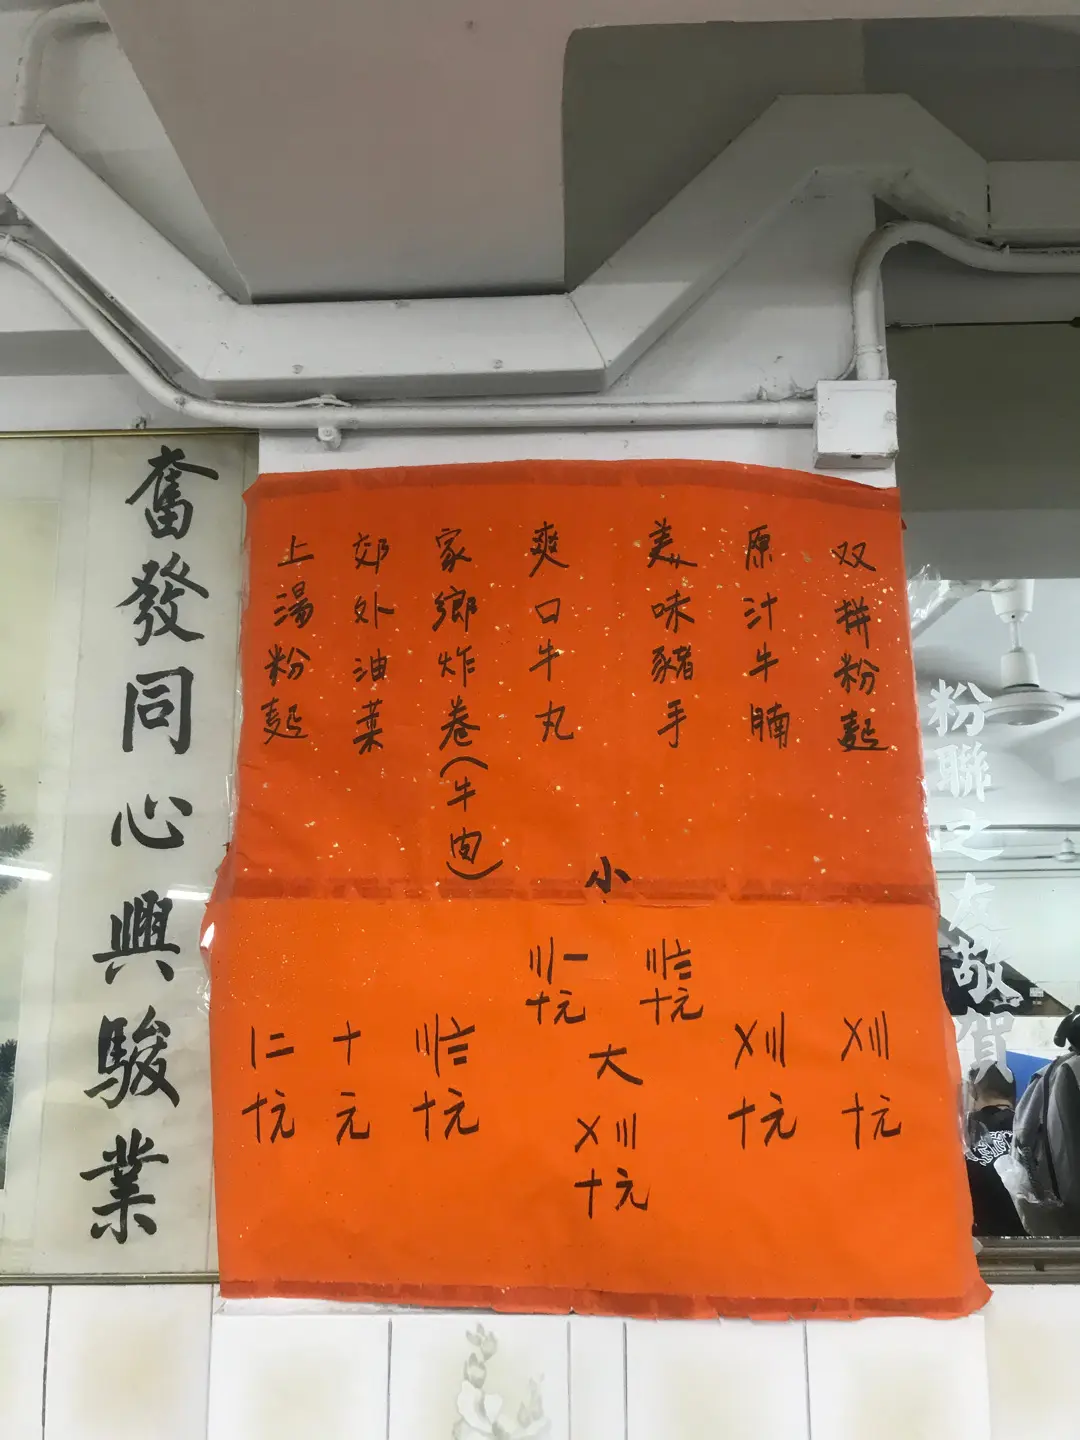 粉聯之友敬賀
双拼粉麵
〤〣
十元
原汁牛腩
〤〣
十元
美味豬手
爽口牛丸
小
〣〨
十元
〣一
十元
大
〤〣
十元
家鄉炸卷(牛肉)
〣〨
十元
郊外油菜
十元
上湯粉麵
〡二
十元
奮發同心興駿業